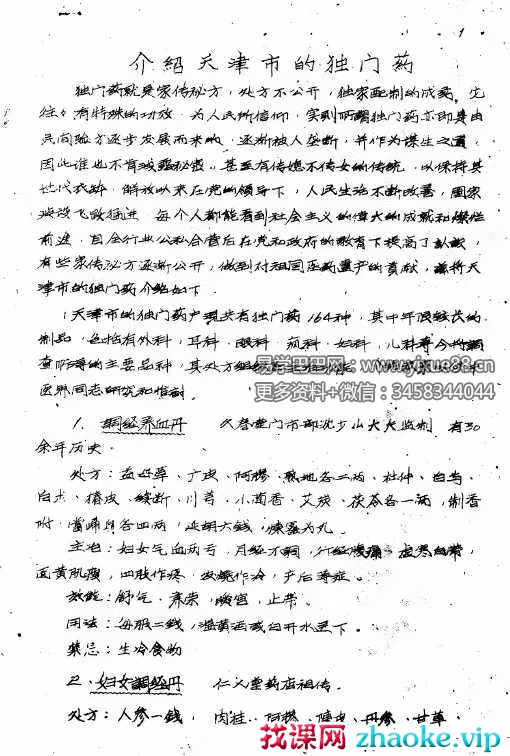 1
介紹天津市的独门药
独门药就是家传秘方，处方不公开，独家配制的成药，它
往々有特殊的功效，为人民所信仰，实则所谓独门药亦即是由
民间验方逐步发展而来的，逐渐被人垄断，并作为谋生之道，
因此谁也不肯泄露秘密，甚至有传媳不传女的传统，以保持其
世代衣缽。解放以来在党的领导下，人民生活不断改善，国家
建设飞跃猛进，每个人都能看到社会主义的偉大的成就和
前途，自全行业公私合营后在党和政府的教育下提高了
有些家传秘方逐渐公开，做到对祖国医药遗产的贡献，兹将天
津市的独门药介紹如下
天津市的独门药户现共有独门药164种，其中年限较长的
制品，包括有外科，耳科，眼科，妇科，儿科等今将調
查所得的主要品种，其处方
医界同志研究和
易学巴巴网：www.yixue88.cn
更多资料+微信：3458344044
1. 調経养血丹 久
门市部沈步山大夫监制 有30
余年历史。
处方：益母草、广皮、阿膠、熟地各二两、杜仲、白芍、
白朮、续断、川芎、小茴香、艾炭、茯苓各一两，制香
附、當歸身各四两，延胡六钱，煉蜜为丸。
主治：妇女气血两亏，月经不調，行经腹痛，虚寒
面黄肌瘦，四肢作疼，发燒作冷，产后等症。
效能：舒气、养荣、暖宫、止带。
用法：每服二錢，温黄酒或白开水送下。
禁忌：生冷食物
2. 妇女調経丹 仁义堂药店祖传。
处方：人参一錢，肉桂、阿膠、陳皮、丹参、甘草、
找课网 zhaoke.vip